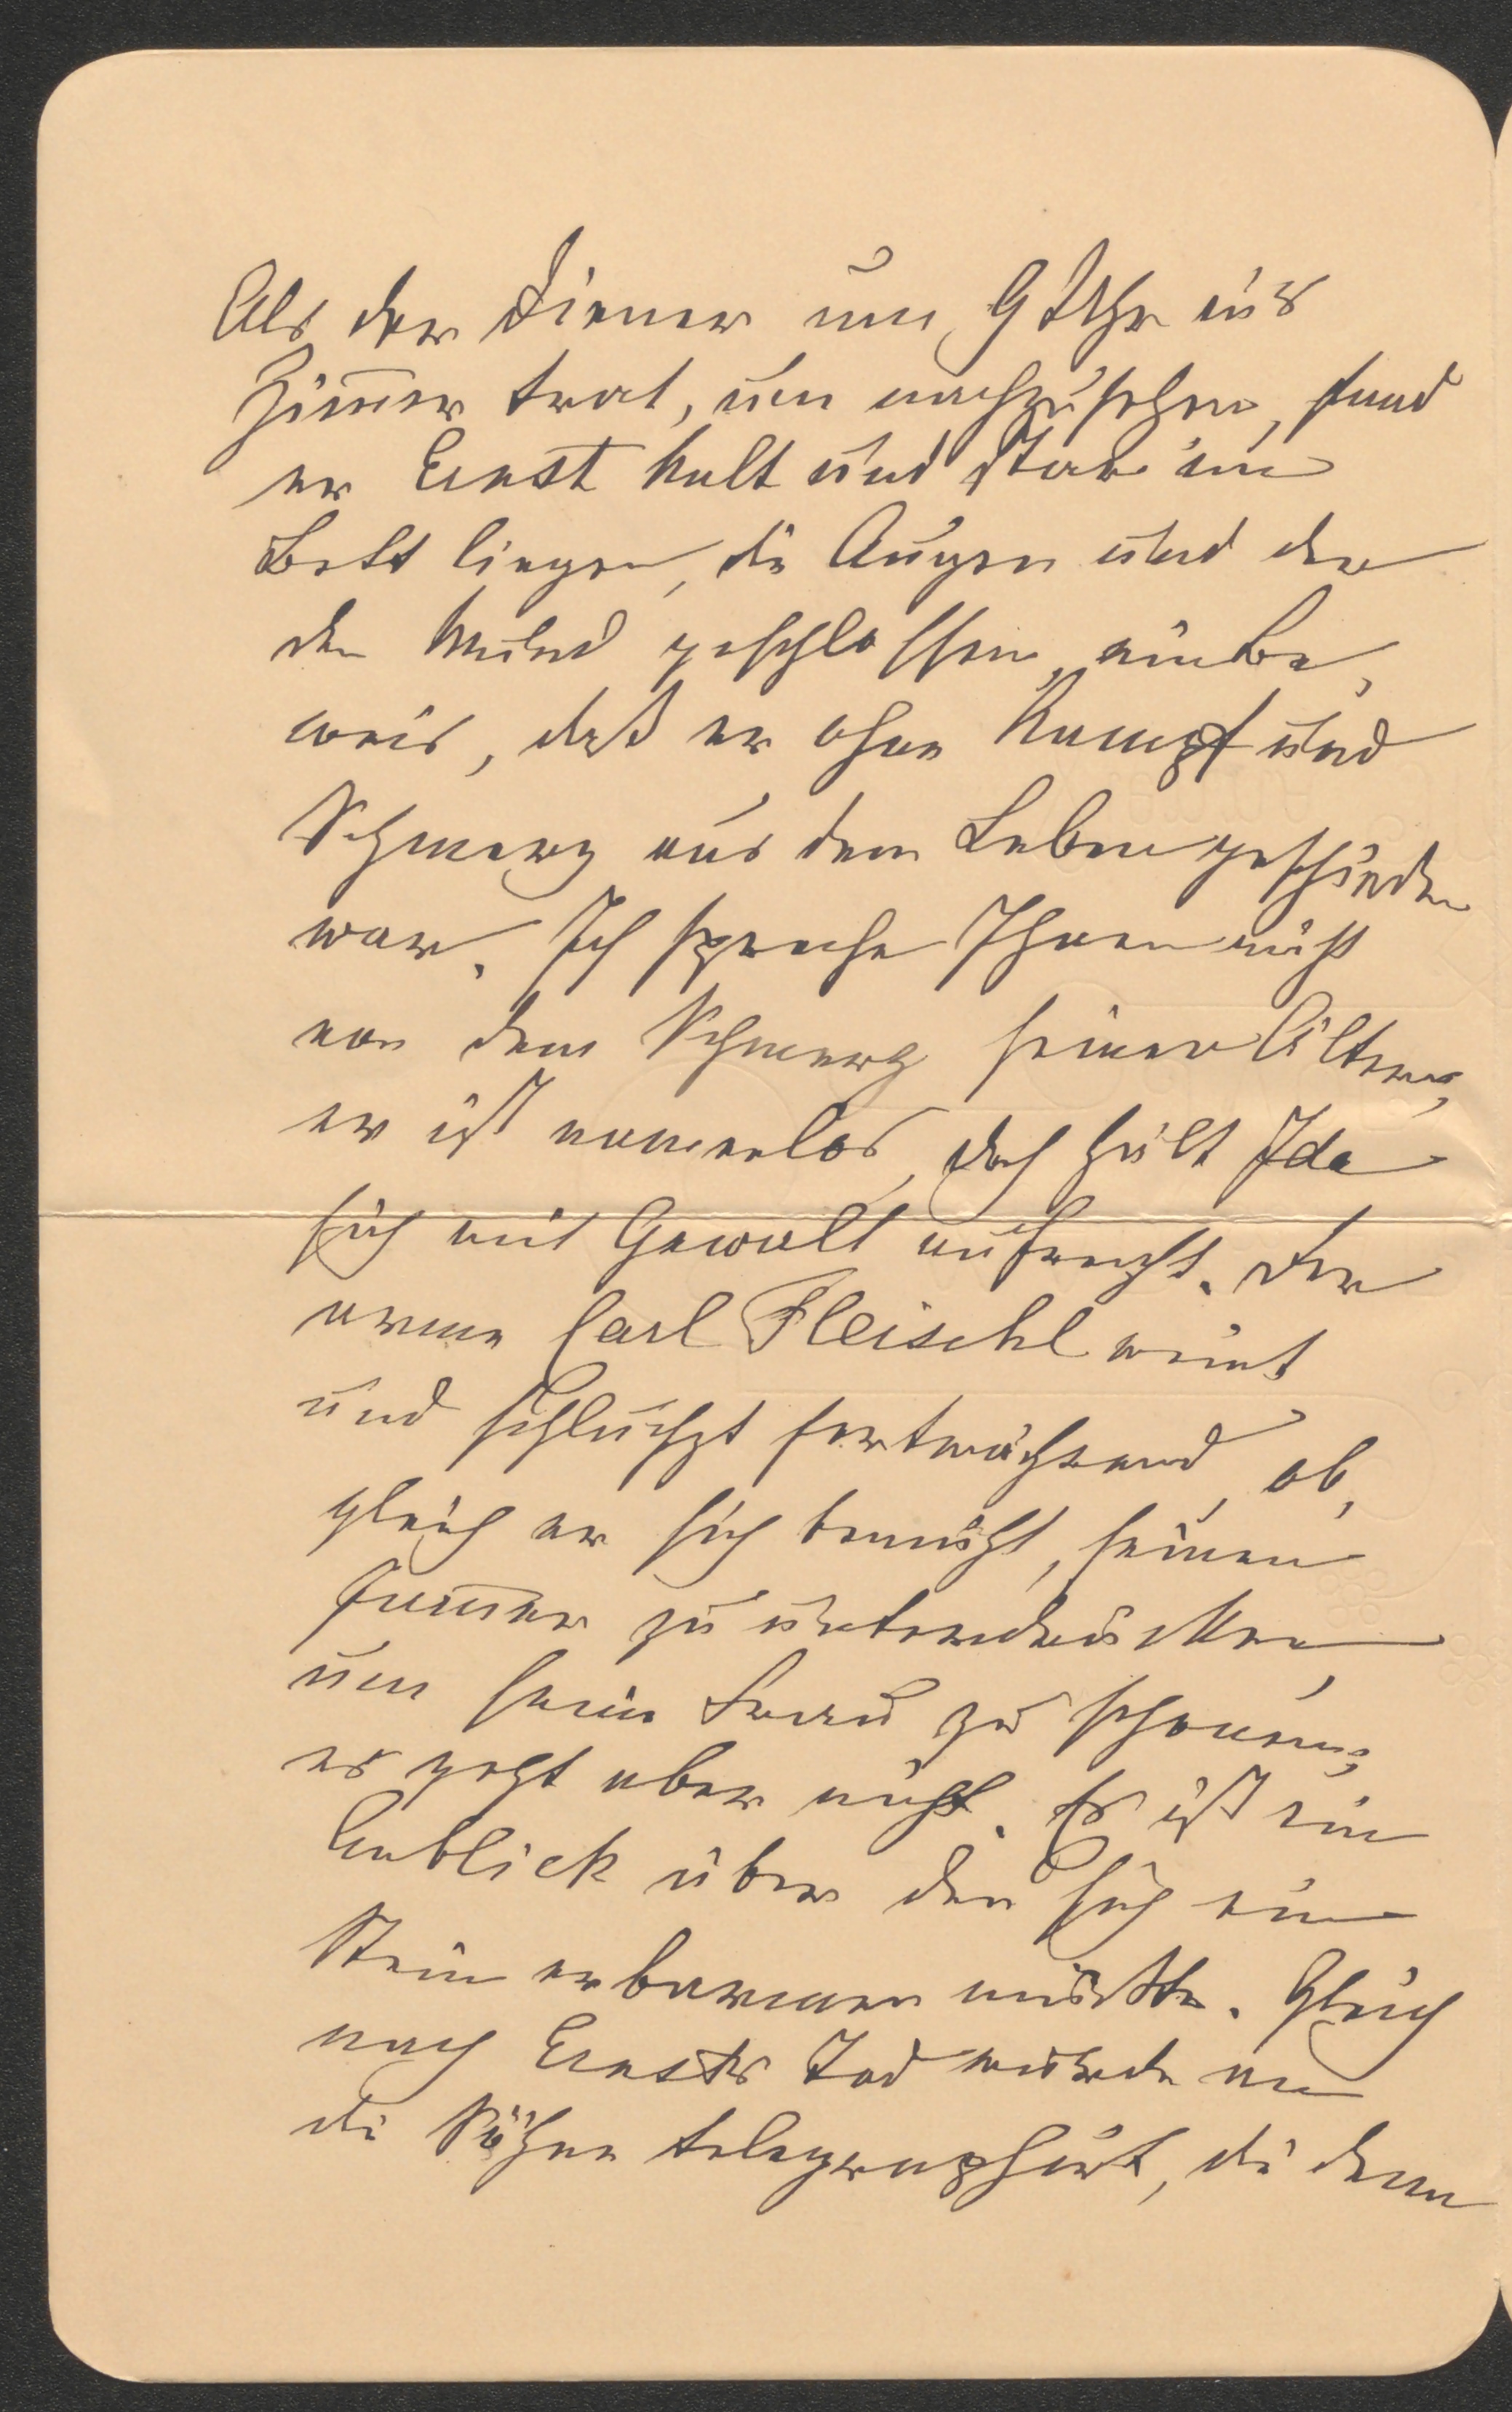 Als der Diener um 9 Uhr ins
Zim̅er trat, um nachzusehen, fand
er Ernst kalt und starr im
Bett liegen, die Augen und der
den Mund geschlossen, ein Be,
weis, daß er ohne Kampf und
Schmerz aus dem Leben geschieden
war. Ich spreche Ihnen nicht
von dem Schmerz seiner Ältern,
er ist namenlos, doch hält Ida
sich mit Gewalt aufrecht. Der
arme Carl Fleischl weint
und schluchzt fortwährend, ob,
gleich er sich bemüht, seinen
Jam̅er zu unterdrücken
um seine Frau zu schonen,
es geht aber nicht. Es ist ein
Anblick über den sich ein
Stein erbarmen müsste. Gleich
nach Ernsts Tod wurde an
die Söhne telegraphirt, die denn